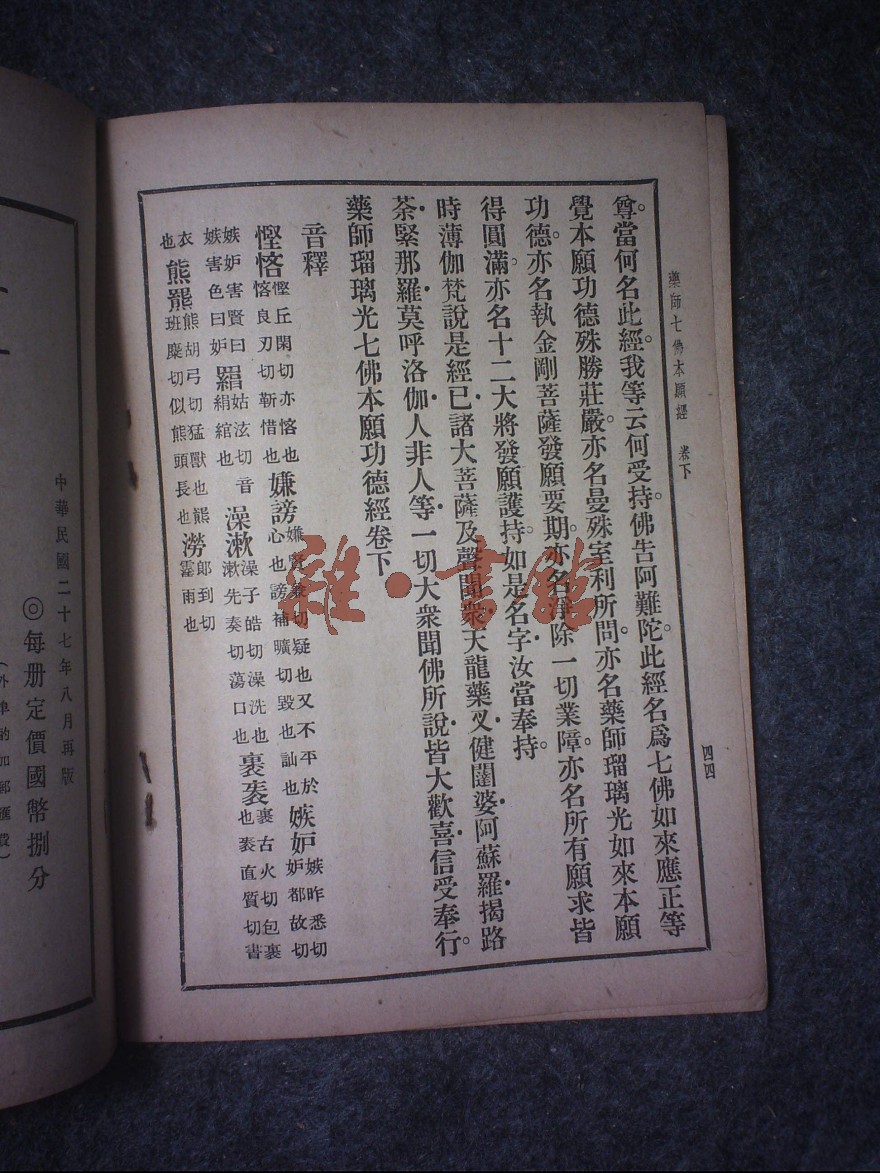 藥師七佛本願經 卷下
四四
尊。當何名此經。我等云何受持。佛告阿難陀。此經名爲七佛如來應正等
覺本願功德殊勝莊嚴。亦名曼殊室利所問。亦名藥師瑠璃光如來本願
功德。亦名執金剛菩薩發願要期。亦名淨除一切業障。亦名所有願求皆
得圓滿。亦名十二大將發願護持。如是名字。汝當奉持。
時薄伽梵說是經已。諸大菩薩及聲聞衆。天龍藥叉。健闥婆。阿蘇羅。揭路
荼。緊那羅。莫呼洛伽。人非人等。一切大衆聞佛所說。皆大歡喜。信受奉行。
藥師瑠璃光七佛本願功德經卷下
音釋
慳悋慳丘閑切亦悋也悋良刃切靳惜也嫌謗嫌賢兼切疑也又不平於心也謗補曠切毀也訕也嫉妒嫉昨悉切妒都故切
嫉妒害賢曰嫉害色曰妒羂姑泫切音絹綰也澡漱澡子皓切澡洗也漱先奏切蕩口也裹袠裹古火切包裹也袠直質切書
衣也熊羆熊胡弓切猛獸也羆班糜切似熊頭長也澇郎到切霪雨也
中華民國二十七年八月再版
◎每册定價國幣捌分
雜·書館